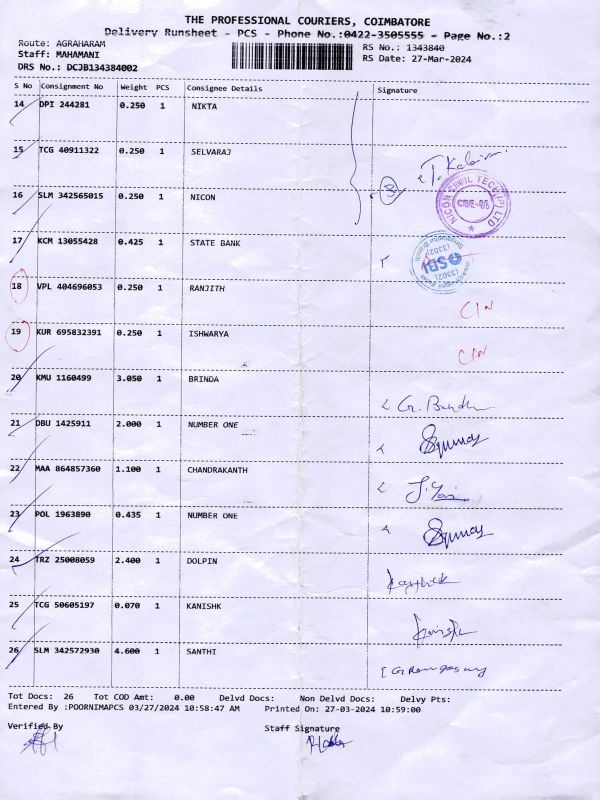 THE PROFESSIONAL COURIERS, COIMBATORE
Delivery Runsheet - PCS - Phone No.:0422-3505555 - Page No.:2
Route: AGRAHARAM RS No.: 1343840
Staff: MAHAMANI RS Date: 27-Mar-2024
DRS No.: DCJB134384002
S No Consignment No Weight PCS Consignee Details Signature
14 DPI 244281 0.250 1 NIKTA
15 TCG 40911322 0.250 1 SELVARAJ
16 SLM 342565015 0.250 1 NICON 3
NICON CIVIL TECH (P) LTD
17 KCM 13055428 0.425 1 STATE BANK
SBI
(3302)
18 VPL 404696053 0.250 1 RANJITH CIN
19 KUR 695832391 0.250 1 ISHWARYA CIN
20 KMU 1160499 3.050 1 BRINDA
21 DBU 1425911 2.000 1 NUMBER ONE
22 MAA 864857360 1.100 1 CHANDRAKANTH
23 POL 1963890 0.435 1 NUMBER ONE
24 TRZ 25008059 2.400 1 DOLPIN
25 TCG 50605197 0.070 1 KANISHK
26 SLM 342572930 4.600 1 SANTHI
Tot Docs: 26 Tot COD Amt: 0.00 Delvd Docs: Non Delvd Docs: Delvy Pts:
Entered By :POORNIMAPCS 03/27/2024 10:58:47 AM Printed On: 27-03-2024 10:59:00
Verified By Staff Signature